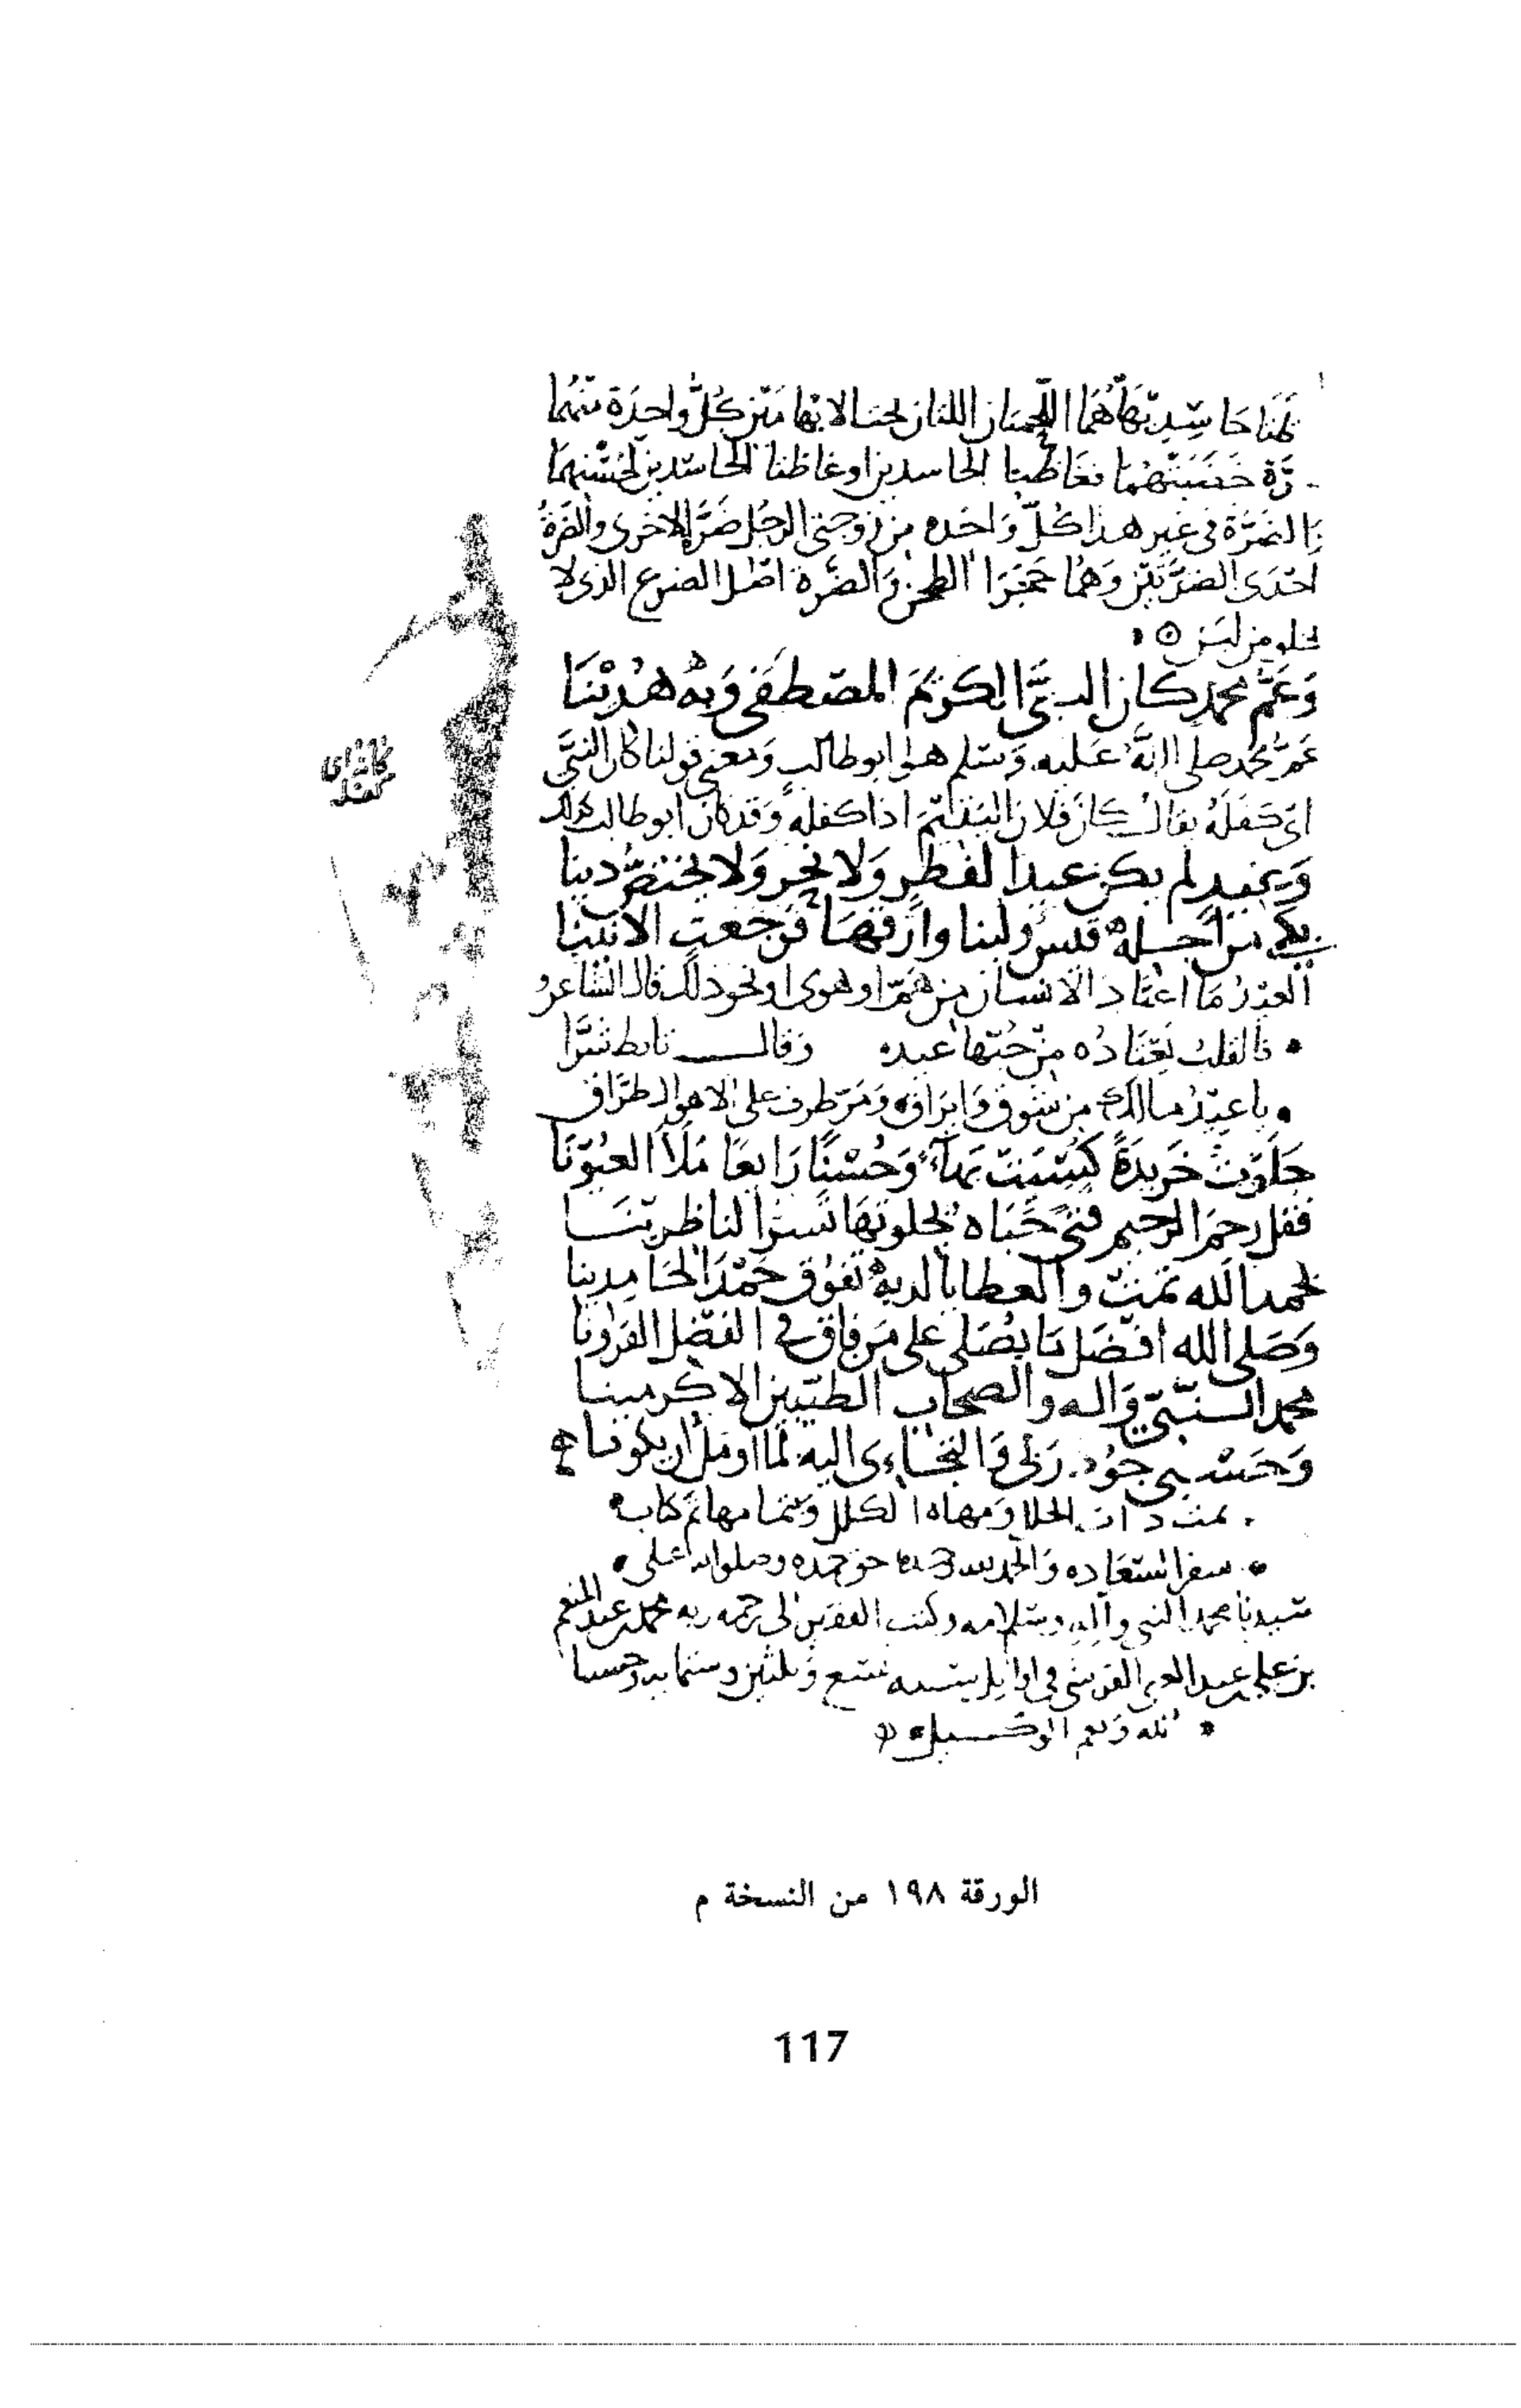 حاسديها هما اللحمتان اللتان لحتا الابهامين كل واحدة منهما
ضرة فغاظتا الحاسدين او غاظتا الحاسدين لحسنهما
الضرة في غير هذا كل واحده من زوجتي الرجل ضرة الاخرى والضرة
احدى الضرتين وهما حجرا الطحن والضرة اصل الضرع الذي لا
يخلو من لبن
وَعَمُّ محمد كان النبيَّ الكريمَ المصطفى وَبه هُدينَا
عم محمد صلى الله عليه وسلم هو ابو طالب ومعنى قولنا كان النبي
اى كفله يقال كان فلان اليتيم اذا كفله وقد كان ابو طالب كذلك
كان اى كفل
وَعيد لم يكن عيدا لفطر وَلا نحر وَلا يختص دينا
من اجله قيس ولبنا وارقها فرجعت الانينا
العيد ما اعتاد الانسان من هم او هوى او نحو ذلك قال الشاعر
فالقلب يعتاده من حبها عيد وقال تابط شرا
يا عيد مالك من شوق وايراق ومر طيف على الاهوال طراق
جلوت خريدة كسيت بهاء وحسنا رايعا ملأ العيونا
فقل رحم الرحيم فتى حباه بجلوتها تسر الناظرينا
بحمد الله تمت والعطايا لديه تفوق حمد الحامدينا
وَصلى الله افضل ما يصلي على من فاق في الفضل القرونا
محمد النبي وَاله والصحاب الطيبين الاكرمينا
وَحسبي جود ربي وَالتجاءى اليه لما اؤمل ان يكونا
تمت ذات الحلل ومهاة الكلل وبتمامها تم كتاب
سفر السعاده والحمد لله حق حمده وصلواته على
سيدنا محمد النبي وآله وسلامه وكتب الفقير الى رحمه ربه محمد بن عبد المنعم
بن علي بن عبد القرشي في اوايل سنه تسع وثلثين وستمايه وحسبنا
الله ونعم الوكيل
الورقة ١٩٨ من النسخة م
117